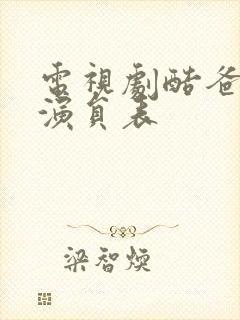 電視劇酷爸
演員表
梁智煐